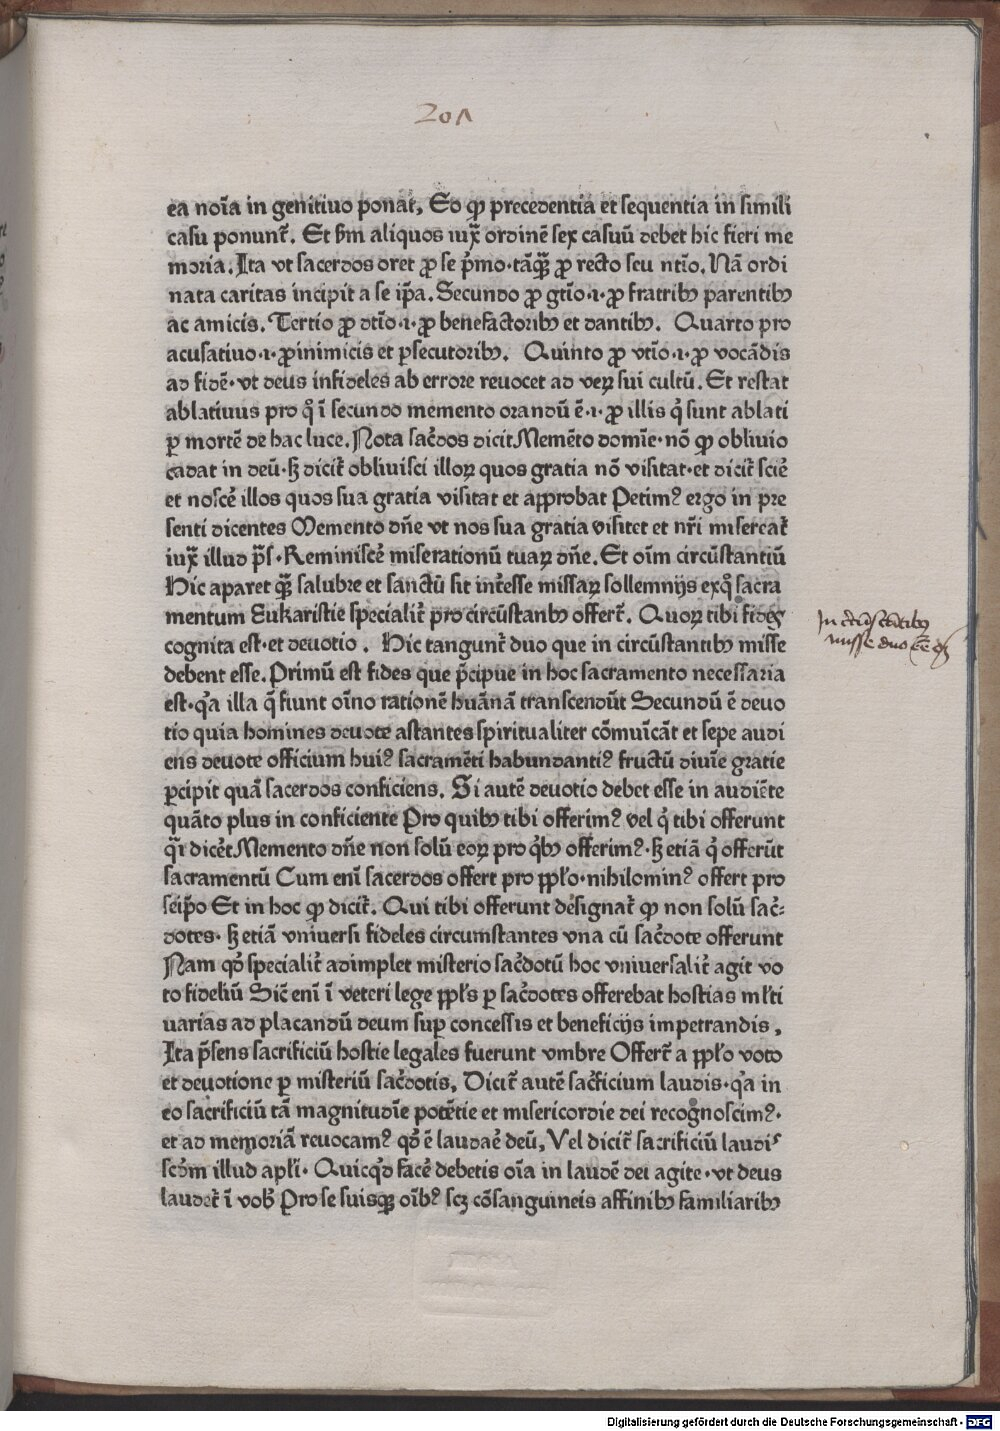 201
ea noīa in genitiuo ponat̄, Eo ꝙ precedentia et sequentia in simili
casu ponunt̄. Et ẜm aliquos iux̄ ordinē sex casuū debet hic fieri me
moria. Ita vt sacerdos oret ꝓ se p̄mo·tāꝙ̄ ꝓ recto seu ntīo. Nā ordi
nata caritas incipit a se ip̄a. Secundo ꝓ gtīo·ı·ꝓ fratribꝫ parentibꝫ
ac amicis. Tertio ꝓ dtīo·ı·ꝓ benefactoribꝫ et dantibꝫ. Quarto pro
acusatiuo·ı·ꝓinimicis et ꝑsecutoribꝫ. Quinto ꝓ vtīo·ı·ꝓ vocādis
ad fidē·vt deus infideles ab errore reuocet ad veꝝ sui cultū. Et restat
ablatiuus pro q̊ ī secundo memento orandū ē·ı·ꝓ illis q̇ sunt ablati
ꝑ mortē de hac luce. Nota sac̄dos dicit Memēto domīe·nō ꝙ obliuio
cadat in deū·ꝫ dicit̄ obliuisci illoꝝ quos gratia nō visitat·et dicit̄ sciē
et noscē illos quos sua gratia visitat et approbat Petimꝰ ergo in pre
senti dicentes Memento dn̄e vt nos sua gratia visitet et nr̄i misereat̄
iux̄ illud p̄s·Reminiscē miserationū tuaꝝ dn̄e. Et oīm circūstantiū
Hic aparet ꝙ̄ salubre et sanctū sit int̄esse missaꝝ sollemnijs exq̊ sacra
mentum Eukaristie specialit̄ pro circūstanbꝫ offert̄. Quoꝝ tibi fides
cognita est·et deuotio. Hic tangunt̄ duo que in circūstantibꝫ misse
debent esse. Primū est fides que p̄cipue in hoc sacramento necessaria
est·qͣa illa q̄ fiunt oīno rationē huānā transcendūt Secundū ē deuo
tio quia homines deuote astantes spiritualiter cōmuīcāt et sepe audi
ens deuote officium huiꝰ sacramēti habundantiꝰ fructū diuīe gratie
ꝑcipit quā sacerdos conficiens. Si autē deuotio debet esse in audiēte
quāto plus in conficiente Pro quibꝫ tibi offerimꝰ vel q̇ tibi offerunt
q̄ı dicēt Memento dn̄e non solū eoꝝ pro q̇bꝫ offerimꝰ·ꝫ etiā q̇ offerūt
sacramentū Cum enī sacerdos offert pro ppl̄o·nihilominꝰ offert pro
seip̄o Et in hoc ꝙ dicit̄. Qui tibi offerunt designat̄ ꝙ non solū sac̄⸗
dotes·ꝫ etiā vniuersi fideles circumstantes vna cū sac̄dote offerunt
Nam qd̓ specialit̄ adimplet misterio sac̄dotū hoc vniuersalit̄ agit vo
to fideliū Sic̄ enī ī veteri lege ppl̄s ꝑ sac̄dotes offerebat hostias ml̄ti
uarias ad placandū deum suꝑ concessis et beneficijs impetrandis.
Ita p̄sens sacrificiū hostie legales fuerunt vmbre Offert̄ a ppl̄o voto
et deuotione ꝑ misteriū sac̄dotis, Dicit̄ autē sac̄ficium laudis·qͣa in
eo sacrificiū tā magnitudīe potētie et misericordie dei recognoscimꝰ·
et ad memoriā reuocamꝰ qd̓ ē laudaē deū, Vel dicit̄ sacrificiū laudis
scd̓m illud apl̄i·Quicq̇d facē debetis oīa in laudē dei agite·vt deus
laudet̄ ī vob̄ Pro se suisqꝫ oībꝰ scꝫ cōsanguineis affinibꝫ familiaribꝫ
In circūstātibꝫ
misse duo
Digitalisierung gefördert durch die Deutsche Forschungsgemeinschaft - DFG